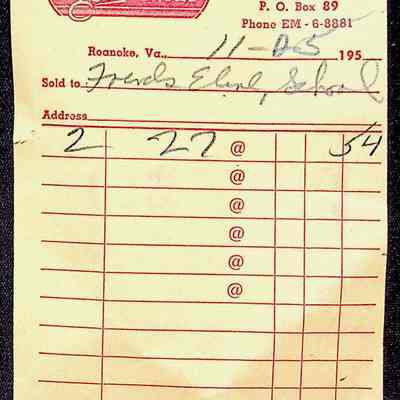 P. O. Box 89
Phone EM - 6-8881
Roanoke, Va., 11-25 195
Sold to Friends Elem, School
Address
2 27 @ 54
@
@
@
@
@